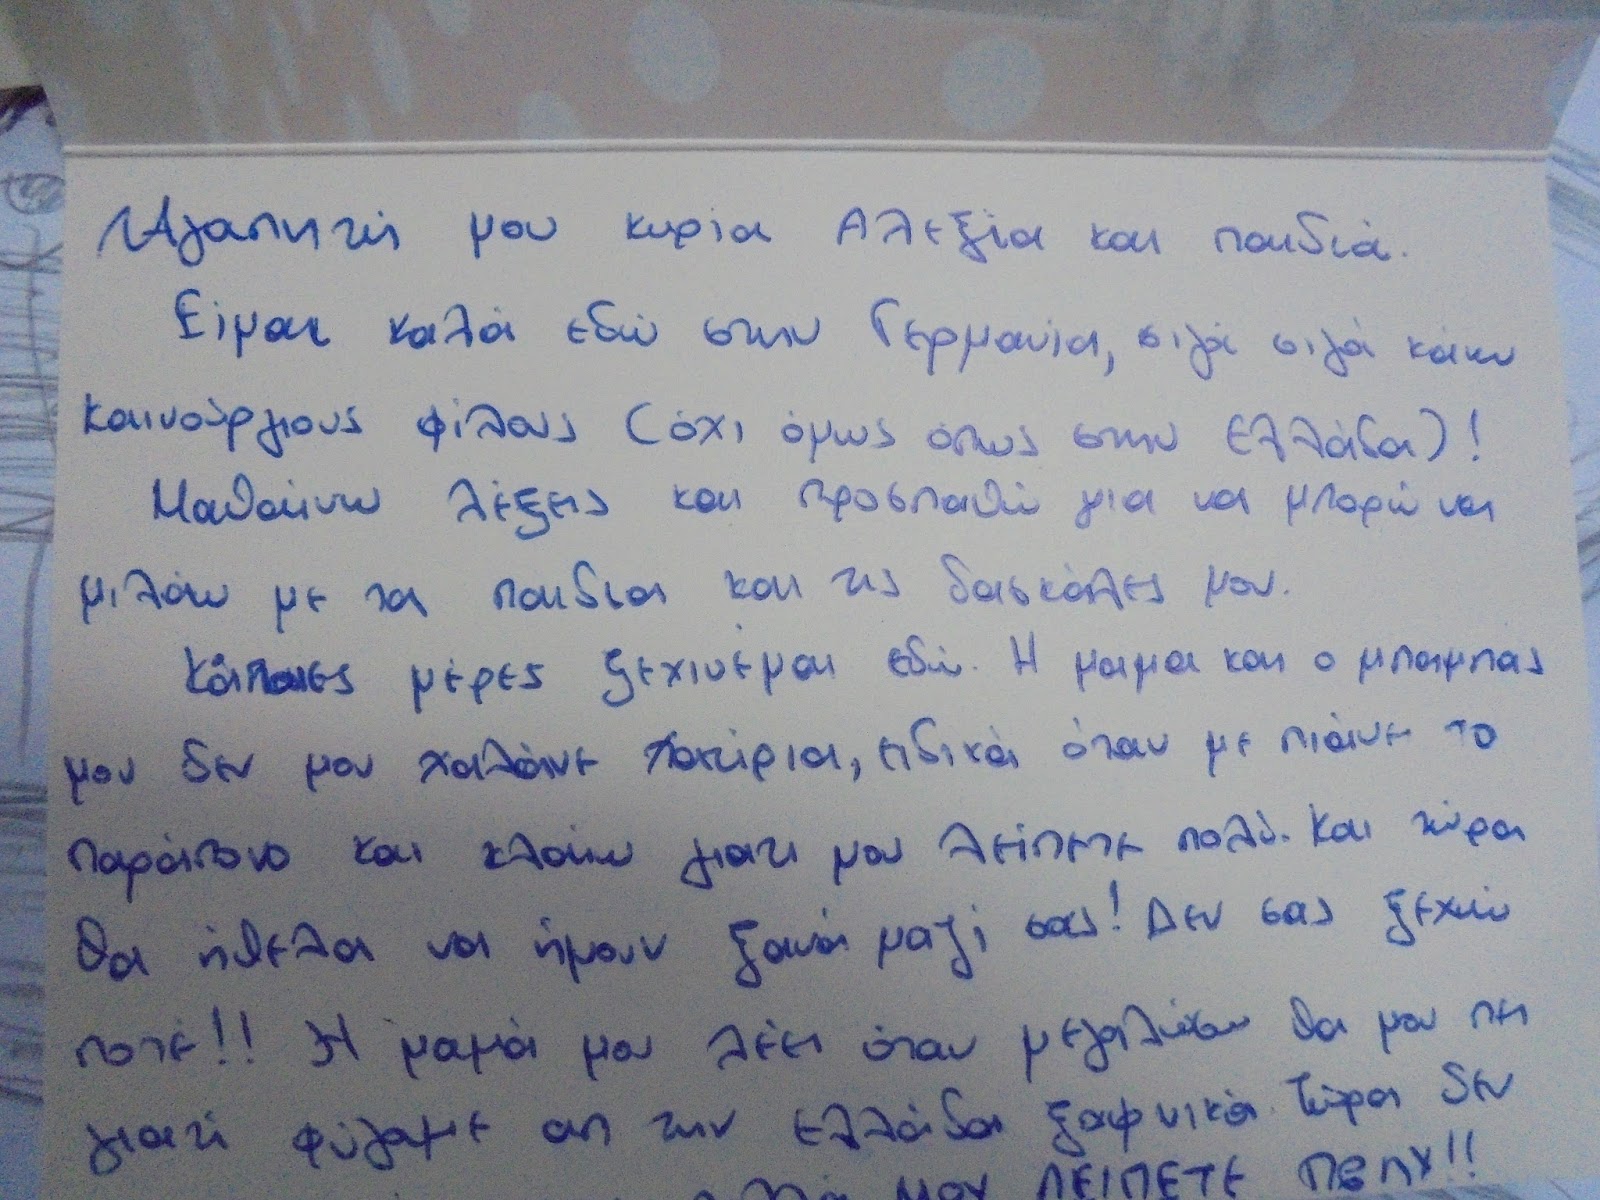 Αγαπητή μου κυρία Αλεξία και παιδιά.
Είμαι καλά εδώ στην Γερμανία, σιγά σιγά κάνω
καινούργιους φίλους (όχι όμως όπως στην Ελλάδα)!
Μαθαίνω λέξεις και προσπαθώ για να μπορώ να
μιλάω με τα παιδια και τις δασκάλες μου.
Κάποιες μέρες ξεχινέμαι εδώ. Η μαμα και ο μπαμπας
μου δεν μου χαλάνε χατίρια, ειδικά όταν με πιάνει το
παράπονο και κλαίω γιατι μου λείπετε πολύ. Και τώρα
θα ήθελα να ήμουν ξανά μαζί σας! Δεν σας ξεχνώ
ποτέ!! Η μαμά μου λέει όταν μεγαλώσω θα μου πει
γιατί φύγαμε απ την Ελλάδα ξαφνικά. Τώρα δεν
ΜΟΥ ΛΕΙΠΕΤΕ ΠΟΛΥ!!